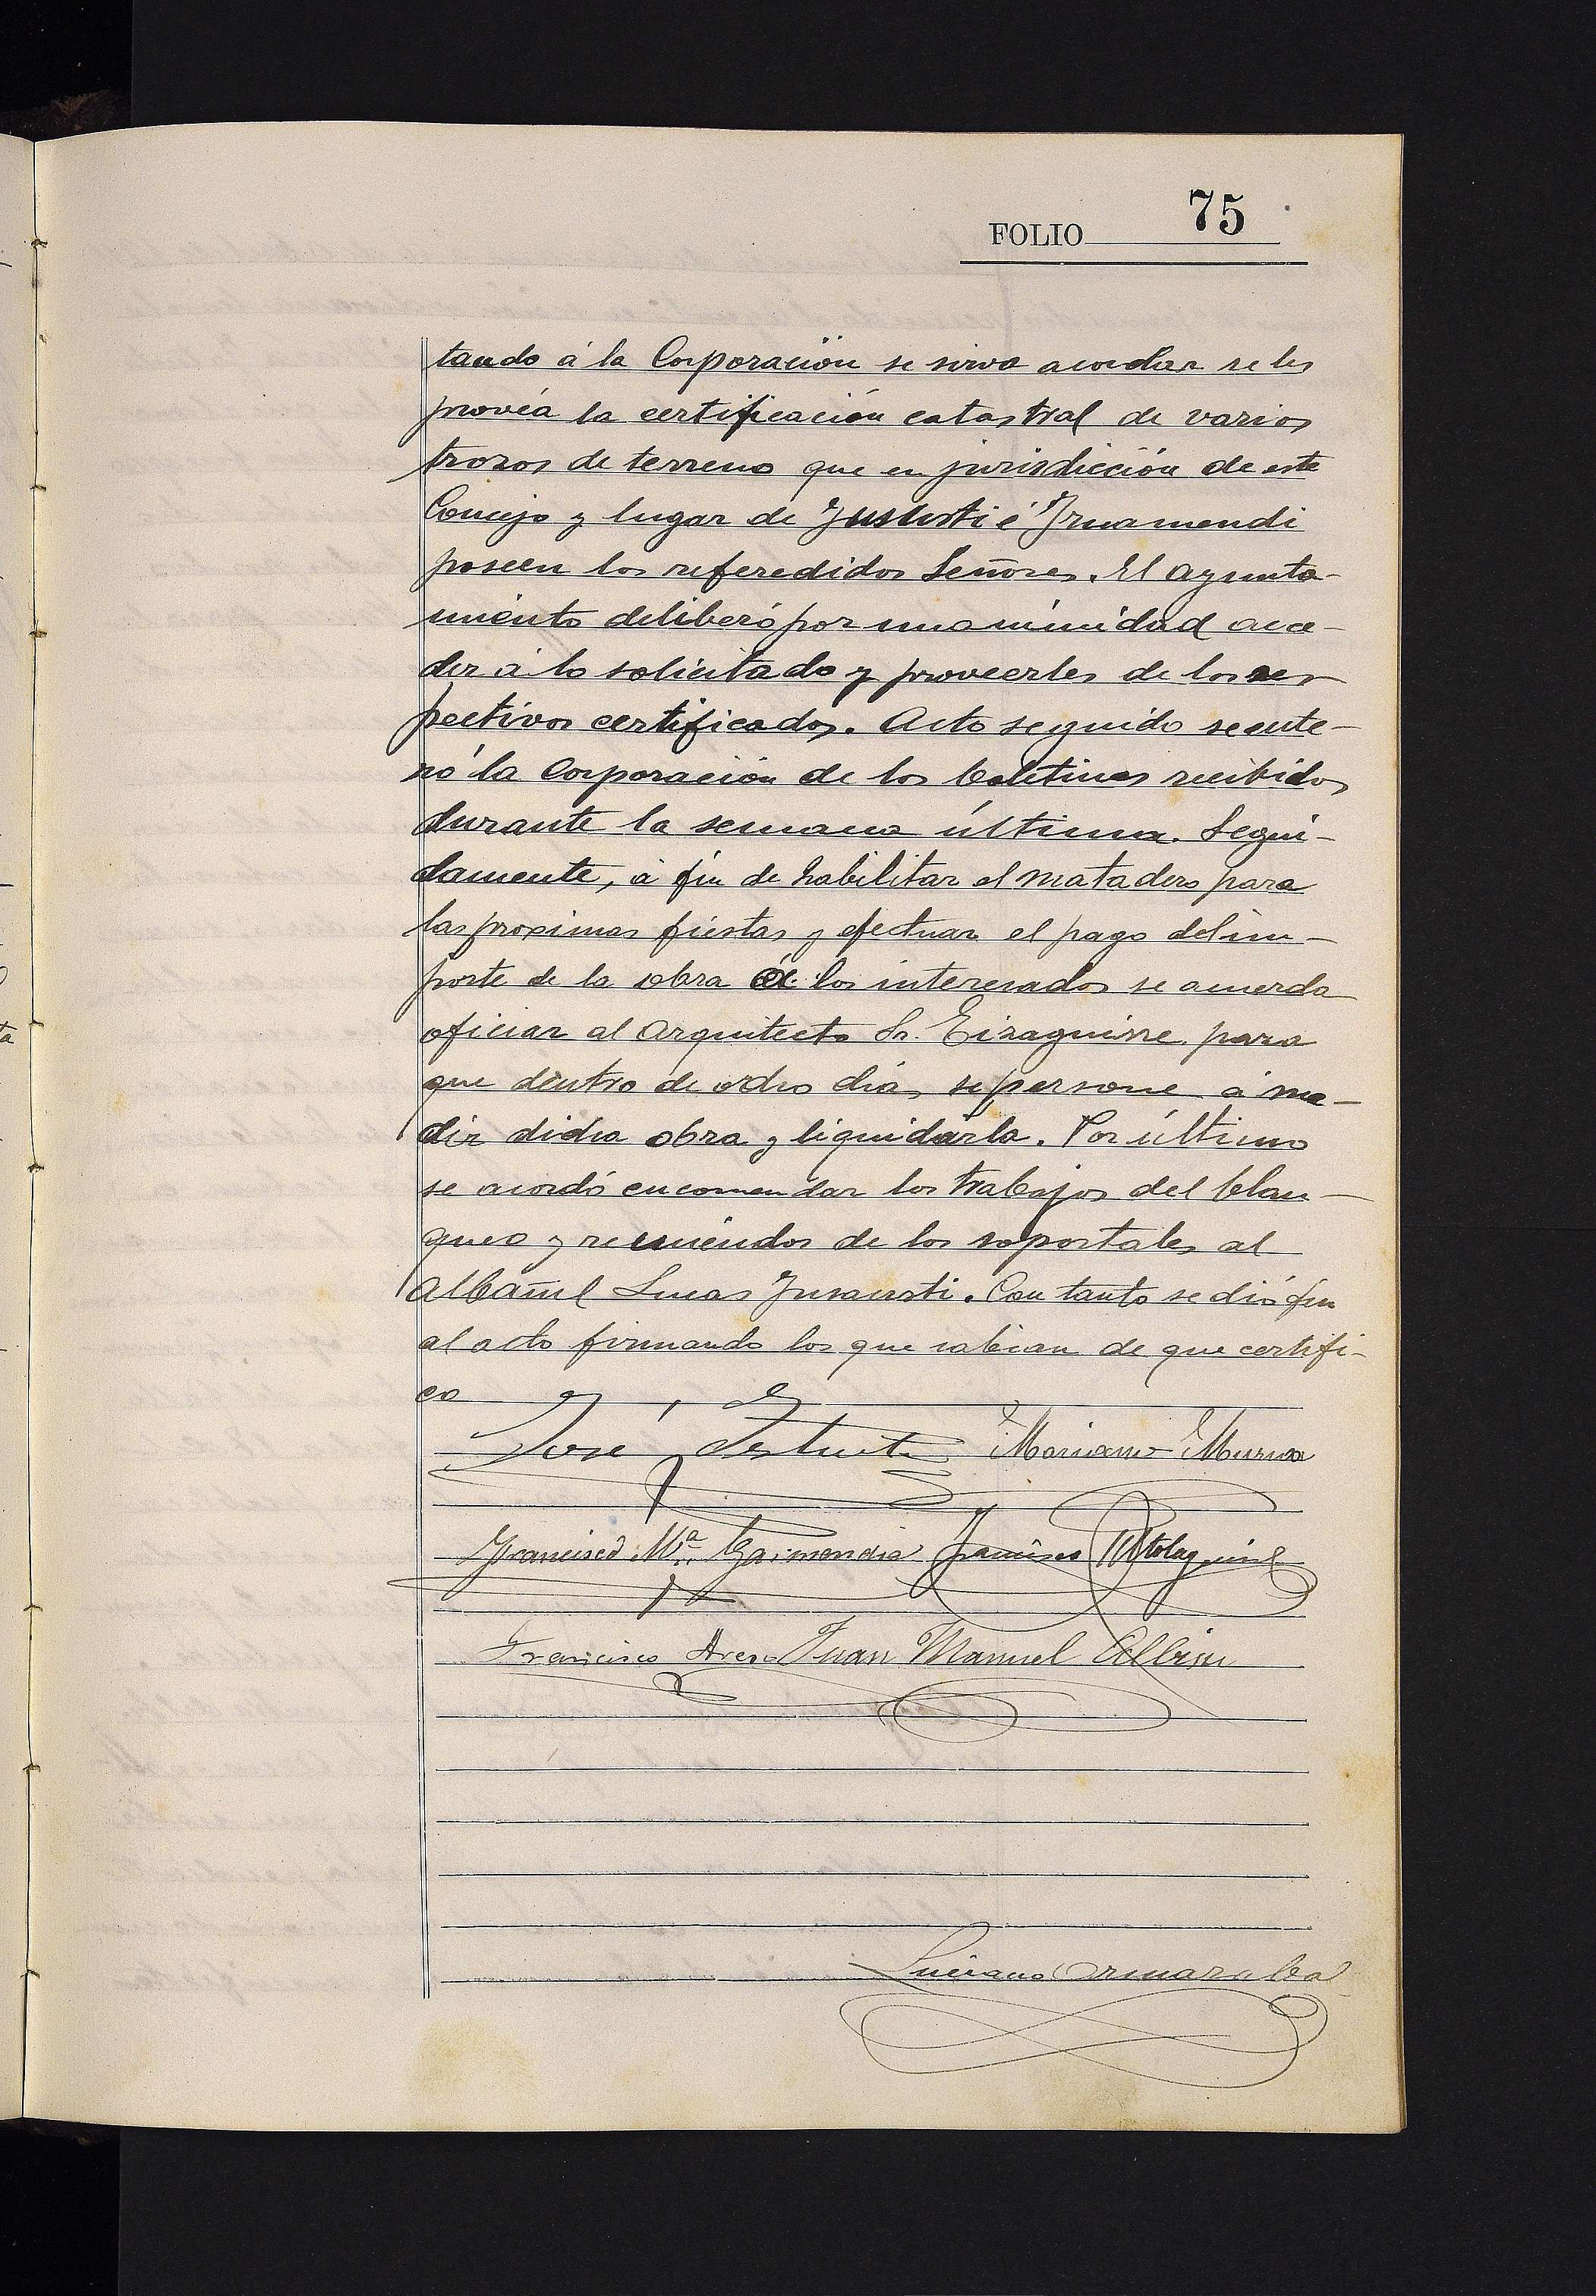 FOLIO 75
tando á la Corporación se sirva acordar se les
provéa la certificación catastral de varios
trozos de terreno que en jurisdicción de este
Concejo y lugar de é Irumendi
poseen los referedidos Señores. El ayunta-
miento deliberó por unanimidad acce-
der á lo solicitado y proveerles de los res-
pectivos certificados. Acto seguido se ente-
ró la Corporación de los boletines recibidos
durante la semana última. Segui-
damente, á fin de habilitar el matadero para
las proximas fiestas y efectuar el pago del im-
porte de la obra á los interesados se acuerda
oficiar al Arquitecto Sr. Eizaguirre para
que dentro de ocho días se persone á me-
dir dicha obra y liquidarla. Por último
se acordó encomendar los trabajos del blan-
queo y remiendos de los soportales al
albañil Lucas Jusausti. Con tanto se dió fin
al acto firmando los que sabian de que certifi-
co
José Mariano Murua
Francisco Mª Garmendia Francisco
Francisco Juan Manuel Albisu
Luciano Ormazabal